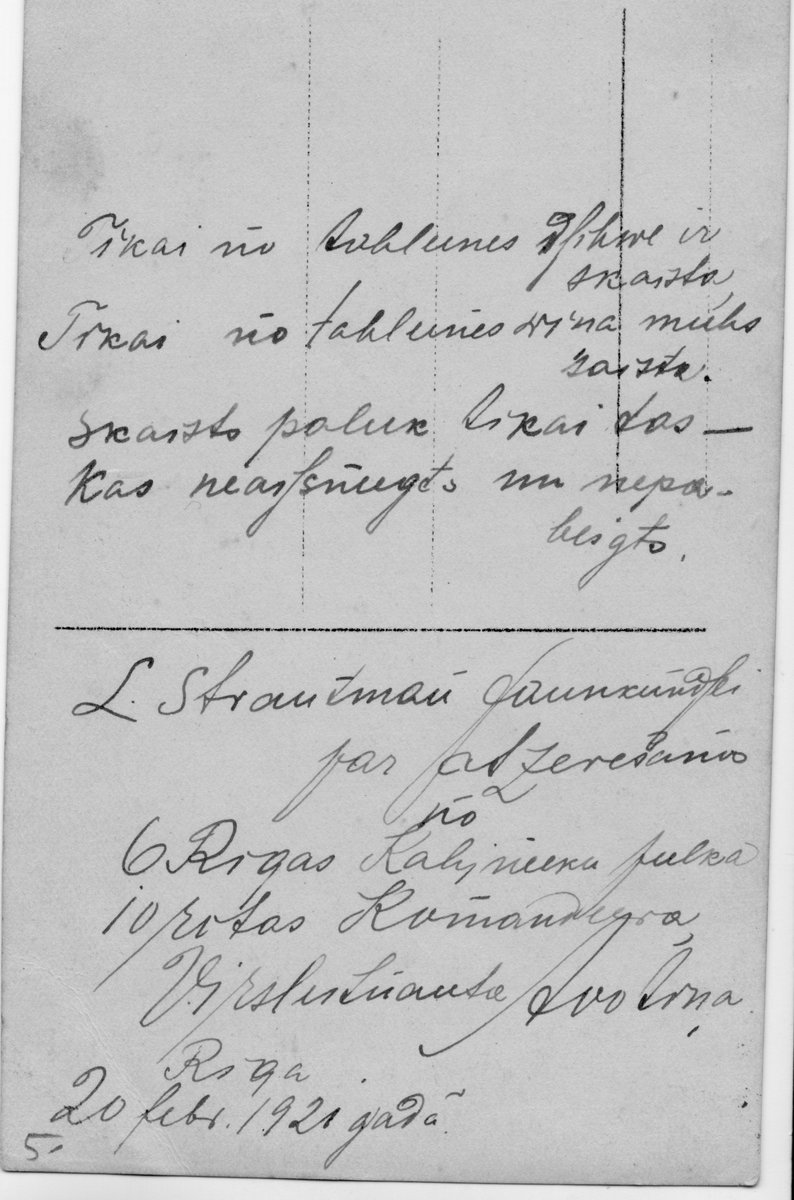 Tikai no tahlienes dsihwe ir
skaista,
Tikai no tahlienes wina muhs
saista.
skaists paliek tikai tas —
Kas neaissneegts un nepa-
beigts.
L. Strautman Jaunkundsei
par atzerešanos
no
6 Rigas Kahjneeku pulka
10 rotas Komandeera,
Virsleitnanta
Riga
20 febr. 1921 gadā.
5.